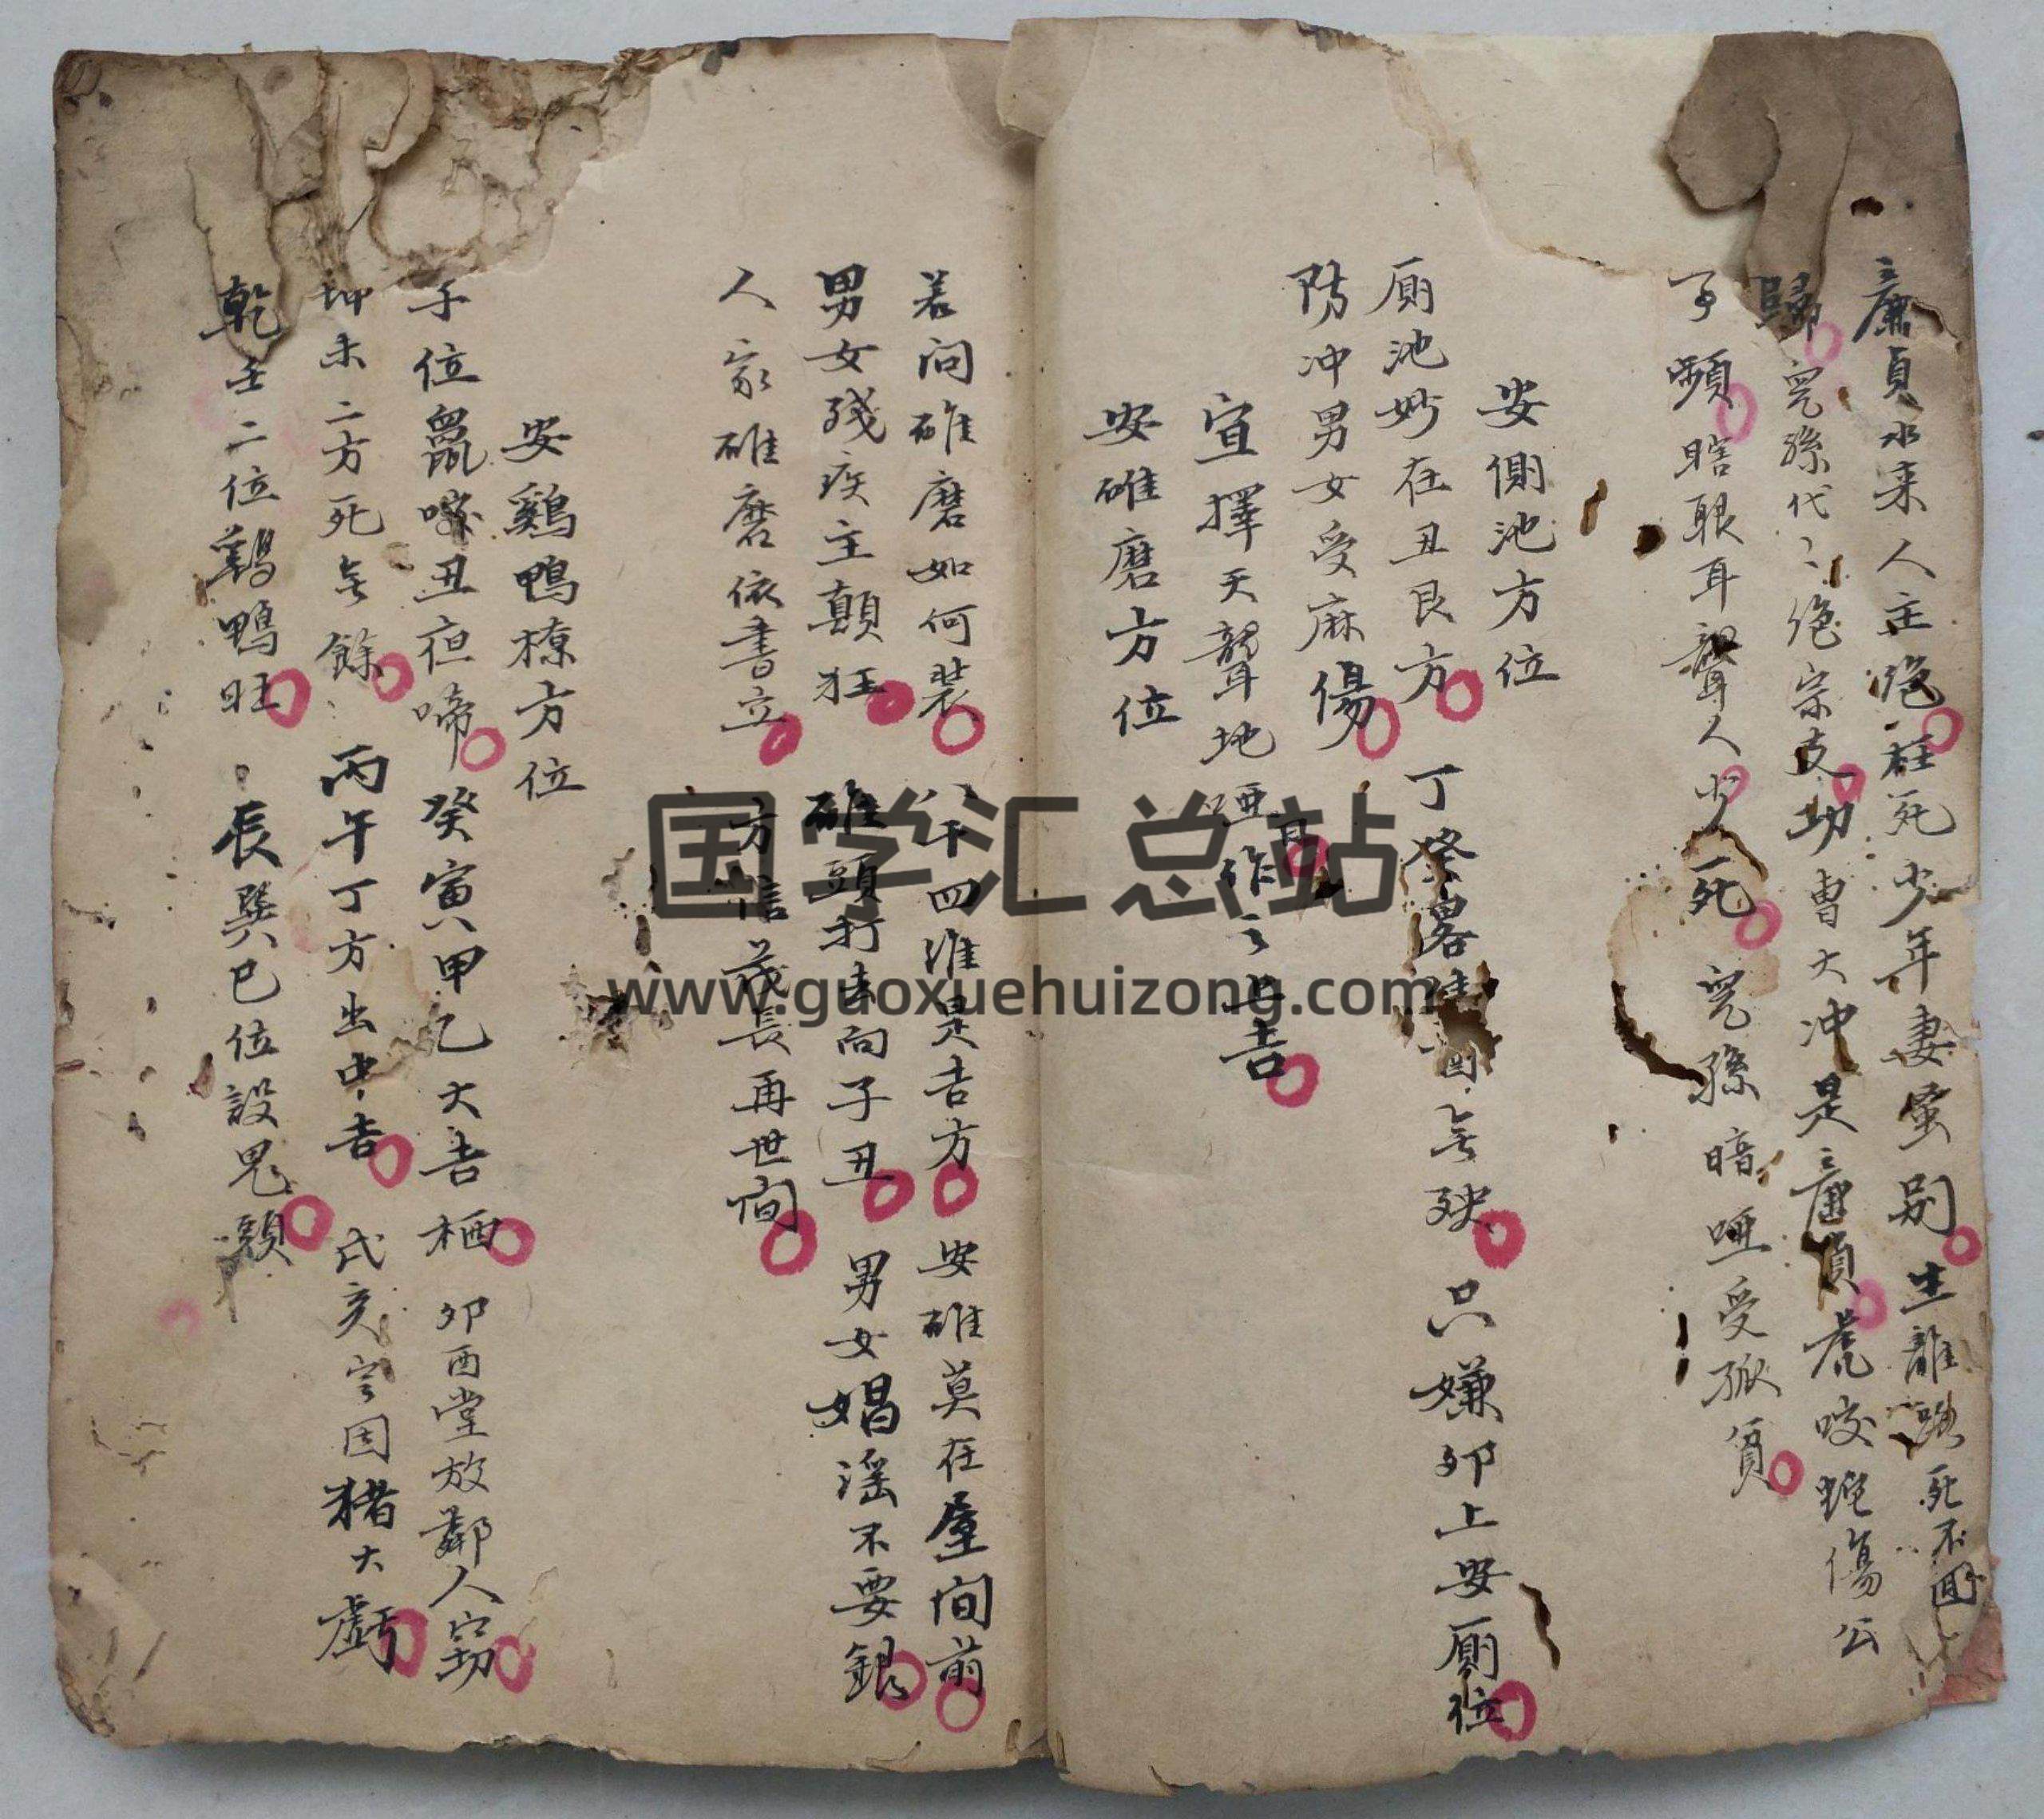 廉貞水来人主絕枉死少年妻蛋别生離路死不回
歸冤孫代〻絕宗支功曹大冲是廉貞虎咬蛇傷公
事頻瞎眼耳聾人少死冤孫暗啞受孤貧
安側池方位
厠池妙在丑艮方丁癸畧無殃只嫌卯上安厠位
防冲男女受麻傷
宜擇天聾地啞日作之上吉
安碓磨方位
若问碓磨如何裝八干四淮是吉方安碓莫在屋间前
男女残疾主顛狂碓頭打去向子丑男女娼淫不要銀
人家碓磨依書立方信茂長再世间
安鷄鴨橑方位
子位鼠咬丑夜啼癸寅甲乙大吉栖卯酉堂放鄰人窃
坤未二方死無餘丙午丁方出中吉戌亥穷困猪大虧
乾壬二位鷄鴨旺辰巽巳位設鬼頭
国学汇总站
www.guoxuehuizong.com